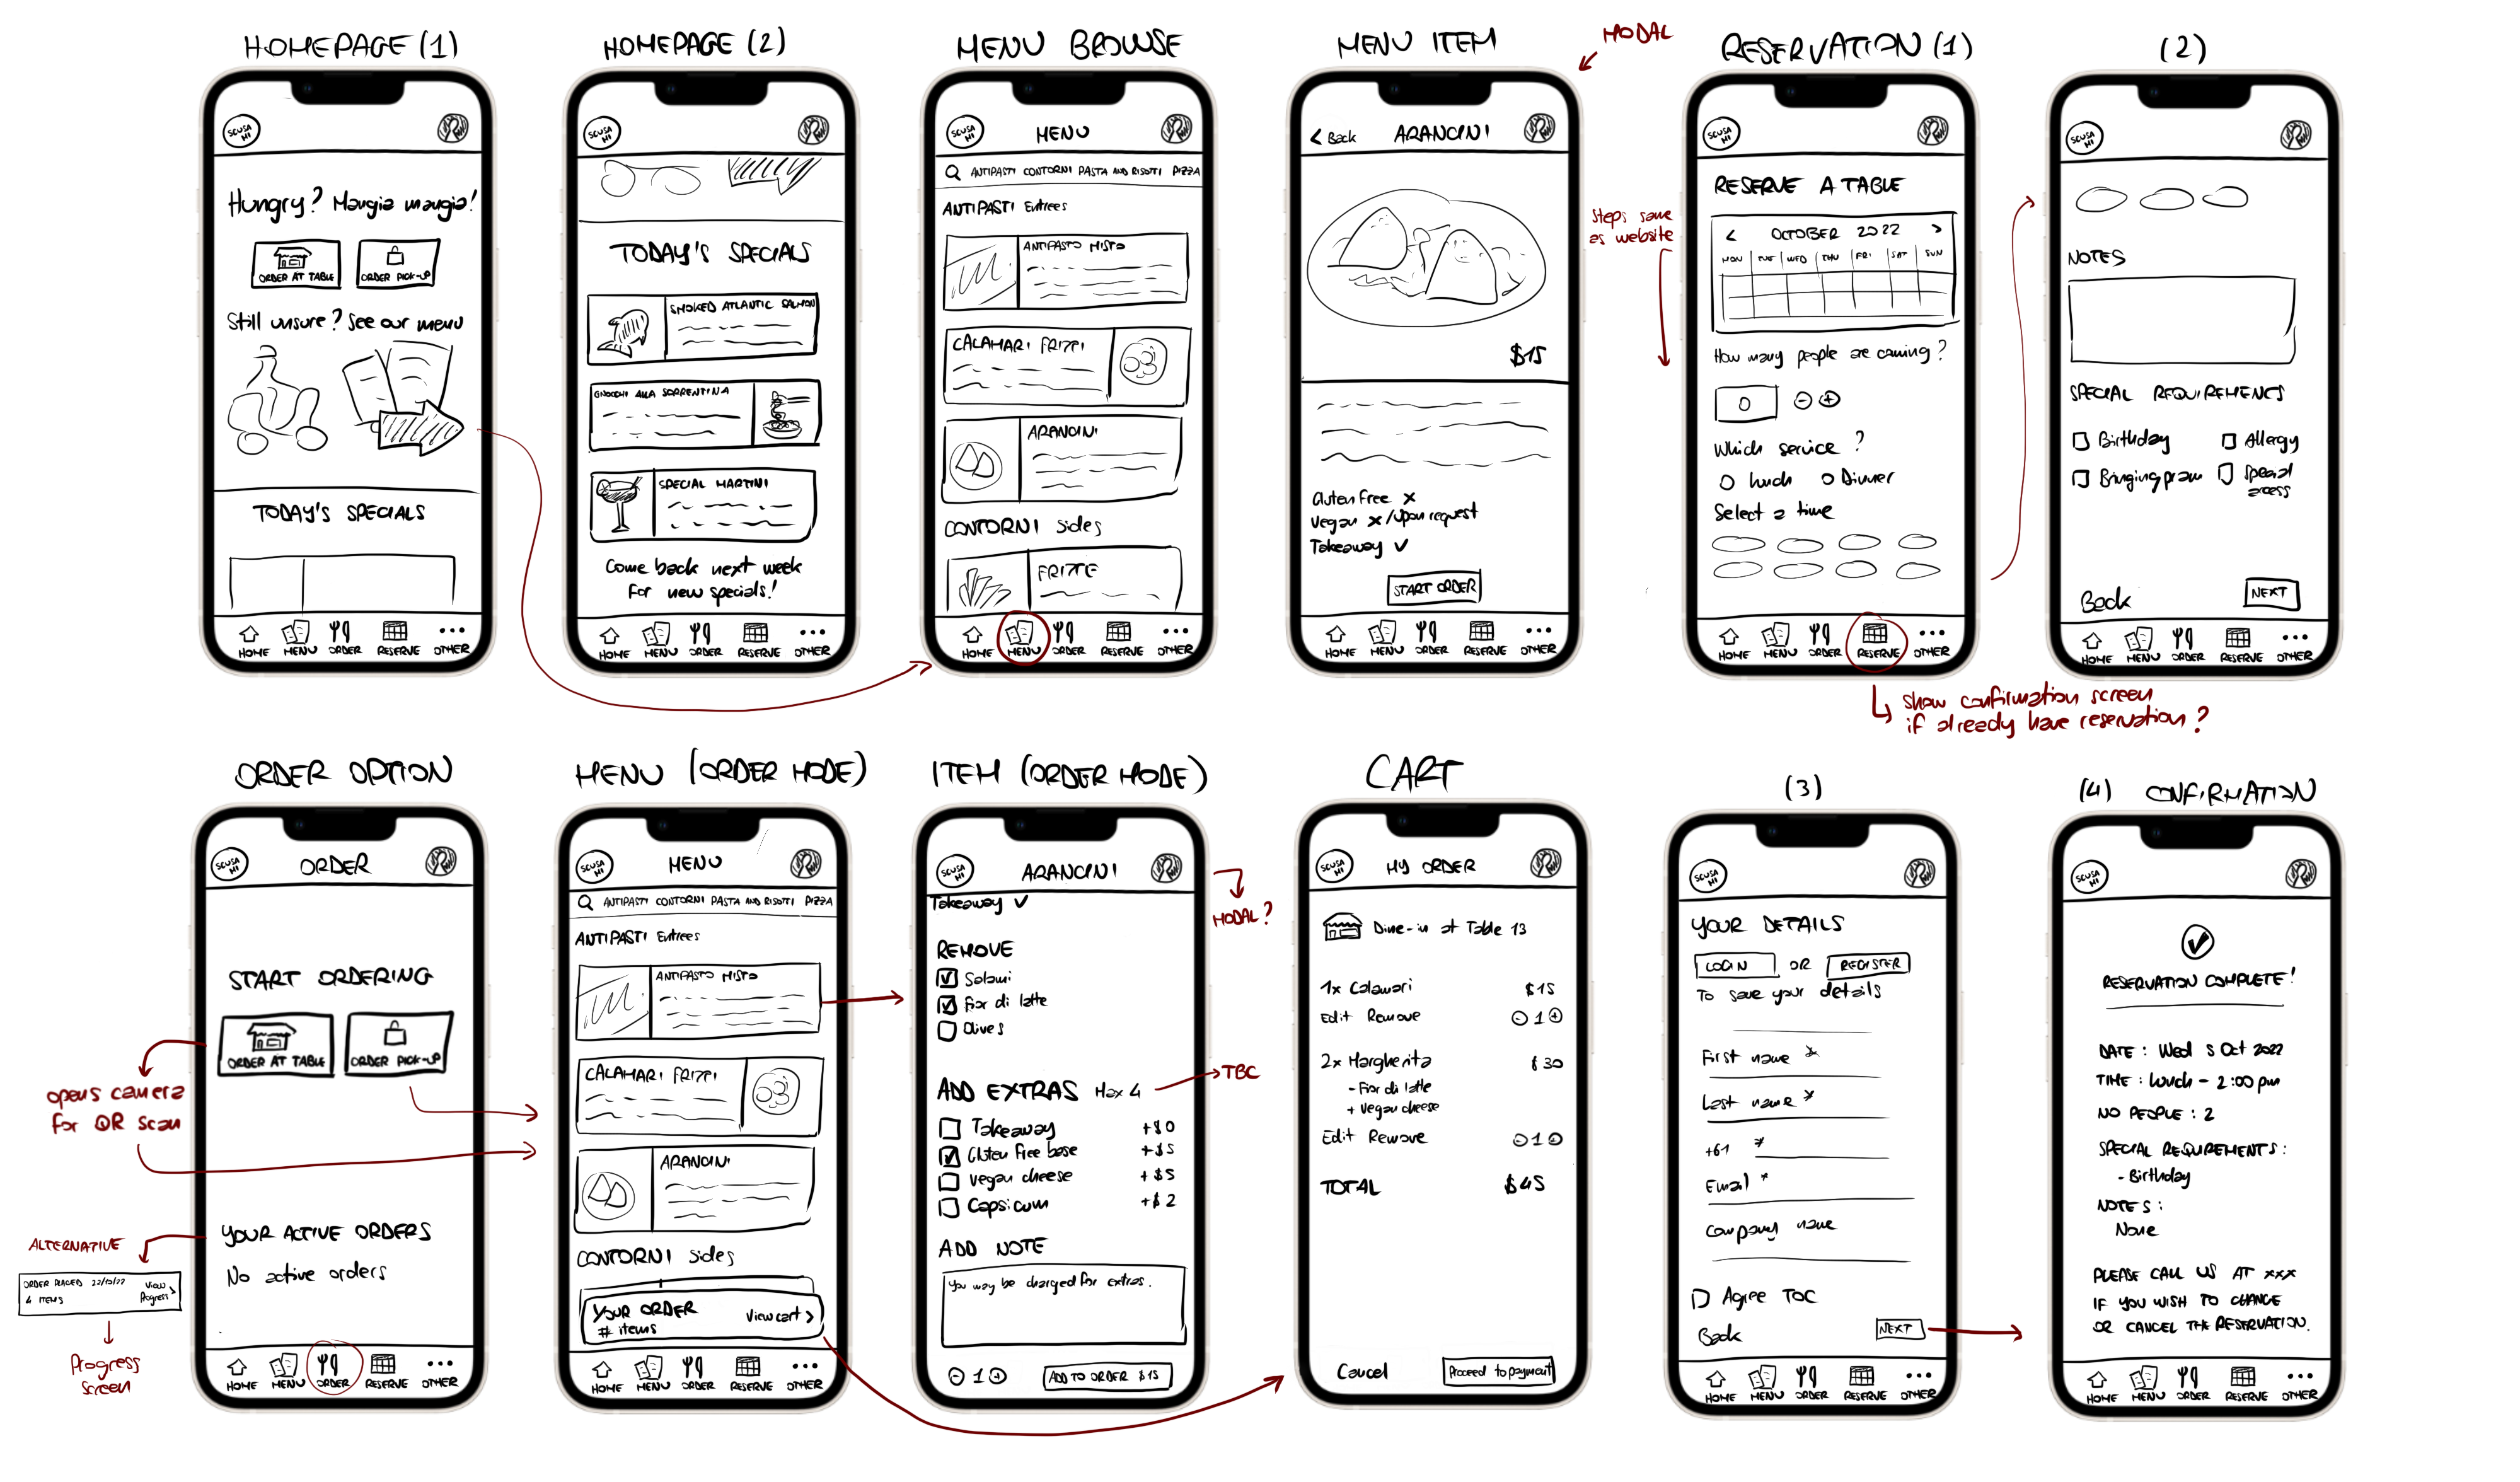 HOMEPAGE (1)
SCUSA
MI
Hungry? Mangia mangia!
ORDER AT TABLE
ORDER PICK-UP
Still unsure? See our menu
TODAY'S SPECIALS
HOME
MENU
ORDER
RESERVE
OTHER
HOMEPAGE (2)
SCUSA
MI
TODAY'S SPECIALS
SMOKED ATLANTIC SALMON
GNOCCHI ALLA SORRENTINA
SPECIAL MARTINI
Come back next week
for new specials!
HOME
MENU
ORDER
RESERVE
OTHER
MENU BROWSE
SCUSA
MI
MENU
ANTIPASTI CONTORNI PASTA AND RISOTTI PIZZA
ANTIPASTI Entrees
ANTIPASTO MISTO
CALAMARI FRITTI
ARANCINI
CONTORNI Sides
FRITTE
HOME
MENU
ORDER
RESERVE
OTHER
MENU ITEM
MODAL
< Back
ARANCINI
$15
Gluten Free x
Vegan x/upon request
Takeaway ✓
START ORDER
HOME
MENU
ORDER
RESERVE
OTHER
RESERVATION (1)
Steps same
as website
SCUSA
MI
RESERVE A TABLE
< OCTOBER 2022 >
MON TUE WED THU FRI SAT SUN
How many people are coming?
0 - +
Which service?
Lunch Dinner
Select a time
HOME
MENU
ORDER
RESERVE
OTHER
show confirmation screen
if already have reservation?
(2)
SCUSA
MI
NOTES
SPECIAL REQUIREMENTS
Birthday
Allergy
Bringing pram
Special
access
Back
NEXT
HOME
MENU
ORDER
RESERVE
OTHER
ORDER OPTION
SCUSA
MI
ORDER
START ORDERING
ORDER AT TABLE
ORDER PICK-UP
opens camera
for QR scan
YOUR ACTIVE ORDERS
No active orders
ALTERNATIVE
ORDER PLACED 22/10/22
4 ITEMS
View
Progress >
Progress
screen
HOME
MENU
ORDER
RESERVE
OTHER
MENU (ORDER MODE)
SCUSA
MI
MENU
ANTIPASTI CONTORNI PASTA AND RISOTTI PIZZA
ANTIPASTI Entrees
ANTIPASTO MISTO
CALAMARI FRITTI
ARANCINI
CONTORNI Sides
YOUR ORDER
# items
View cart >
HOME
MENU
ORDER
RESERVE
OTHER
ITEM (ORDER MODE)
SCUSA
MI
ARANCINI
MODAL?
Takeaway ✓
REMOVE
Salami
Fior di latte
Olives
ADD EXTRAS Max 4
TBC
Takeaway +$0
Gluten free base +$5
Vegan cheese +$5
Capsicum +$2
ADD NOTE
You may be charged for extras.
- 1 +
ADD TO ORDER $15
CART
SCUSA
MI
MY ORDER
Dine-in at Table 13
1x Calamari $15
Edit Remove - 1 +
2x Margherita $30
- Fior di latte
+ Vegan cheese
Edit Remove - 1 +
TOTAL $45
Cancel
Proceed to payment
(3)
SCUSA
MI
YOUR DETAILS
LOGIN OR REGISTER
To save your details
First name *
Last name *
+61 *
Email *
Company name
Agree TOC
Back
NEXT
HOME
MENU
ORDER
RESERVE
OTHER
(4) CONFIRMATION
SCUSA
MI
RESERVATION COMPLETE!
DATE: Wed 5 Oct 2022
TIME: Lunch - 2:00 pm
NO PEOPLE: 2
SPECIAL REQUIREMENTS:
- Birthday
NOTES:
None
PLEASE CALL US AT xxx
IF YOU WISH TO CHANGE
OR CANCEL THE RESERVATION.
HOME
MENU
ORDER
RESERVE
OTHER